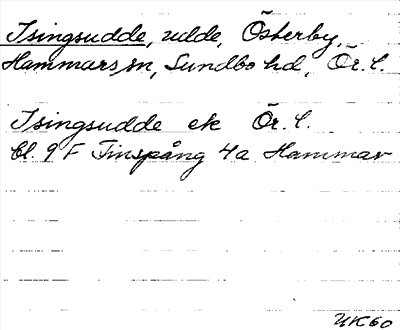 Isingsudde, udde, Österby,
Hammars sn, Sundbo hd, Ör. l.
Isingsudde ek Ör. l.
bl. 9 F Finspång 4a Hammar
UK60